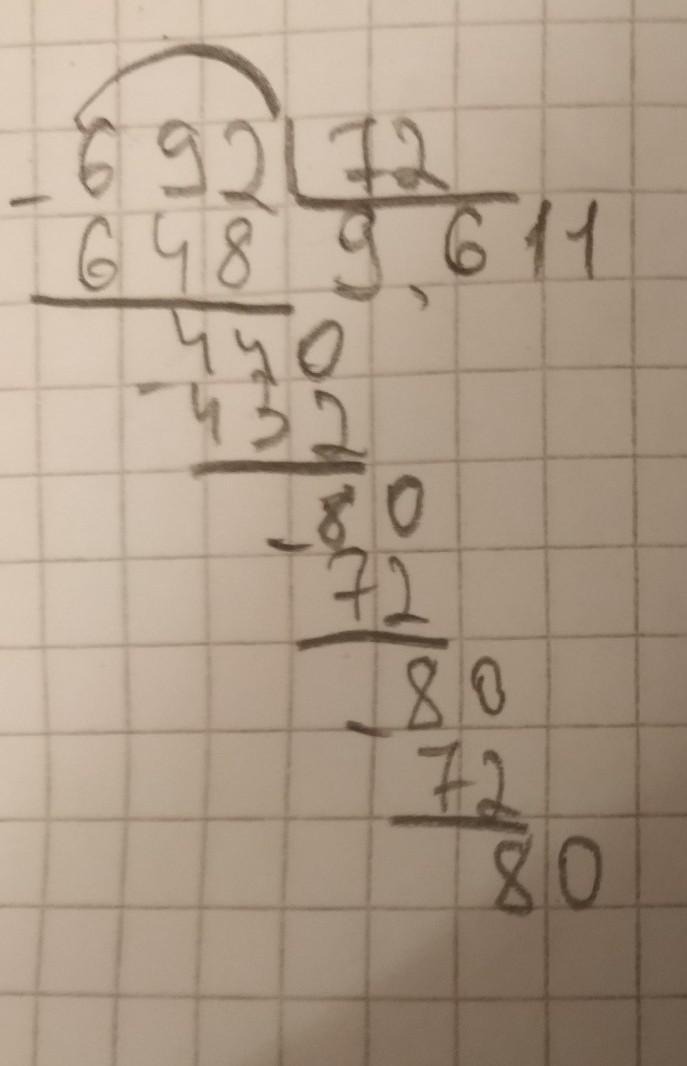 692 72
- 648 9,611
440
- 432
80
- 72
80
- 72
80